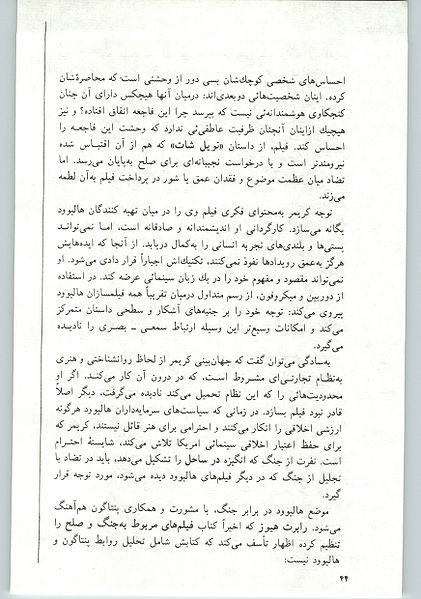 احساس‌های شخصی کوچك‌شان بسی دور از وحشتی است که محاصره‌شان
کرده. اینان شخصیت‌هائی دوبعدی‌اند: درمیان آنها هیچکس دارای آن چنان
کنجکاوی هوشمندانه‌ئی نیست که بپرسد چرا این فاجعه اتفاق افتاده؟ و نیز
هیچیك ازاینان آنچنان ظرفیت عاطفی‌ئی ندارد که وحشت این فاجعه را
احساس کند. فیلم، از داستان «نویل شات» که هم از آن اقتباس شده
نیرومندتر است و با درخواست نجیبانه‌ای برای صلح به‌پایان می‌رسد. اما
تضاد میان عظمت موضوع و فقدان عمق یا شور در پرداخت فیلم به‌آن لطمه
می‌زند.
توجه کریمر به‌محتوای فکری فیلم وی را در میان تهیه کنندگان هالیوود
یگانه می‌سازد. کارگردانی او اندیشمندانه و صادقانه است، اما نمی‌تواند
پستی‌ها و بلندی‌های تجربه انسانی را به‌کمال دریابد. از آنجا که ایده‌هایش
هرگز به‌عمق رویدادها نفوذ نمی‌کنند، تکنیك‌اش اجباراً قرار دادی می‌شود. او
نمی‌تواند مقصود و مفهوم خود را در یك زبان سینمائی عرضه کند. در استفاده
از دوربین و میکروفون، از رسم متداول درمیان تقریباً همه فیلمسازان هالیوود
پیروی می‌کند: توجه خود را بر جنبه‌های آشکار و سطحی داستان متمرکز
می‌کند و امکانات وسیع‌تر این وسیله ارتباط سمعی ـ بصری را نادیده
می‌گیرد.
به‌سادگی می‌توان گفت که جهان‌بینی کریمر از لحاظ روانشناختی و هنری
به‌نظام تجارتی‌ای مشروط است، که در درون آن کار می‌کند. اگر او
محدودیت‌هائی را که این نظام تحمیل می‌کند نادیده می‌گرفت، دیگر اصلاً
قادر نبود فیلم بسازد. در زمانی که سیاست‌های سرمایه‌داران هالیوود هرگونه
ارزشی اخلاقی را انکار می‌کنند و احترامی برای هنر قائل نیستند، کریمر که
برای حفظ اعتبار اخلاقی سینمائی امریکا تلاش می‌کند، شایستهٔ احترام
است. نفرت از جنگ که انگیزه در ساحل را تشکیل می‌دهد، باید در تضاد با
تجلیل از جنگ که در دیگر فیلم‌های هالیوود دیده می‌شود، مورد توجه قرار
گیرد.
موضع هالیوود در برابر جنگ، با مشورت و همکاری پنتاگون هم‌آهنگ
می‌شود. رابرت هیوز که اخیراً کتاب فیلم‌های مربوط به‌جنگ و صلح را
تنظیم کرده اظهار تأسف می‌کند که کتابش شامل تحلیل روابط پنتاگون و
هالیوود نیست:
۴۴